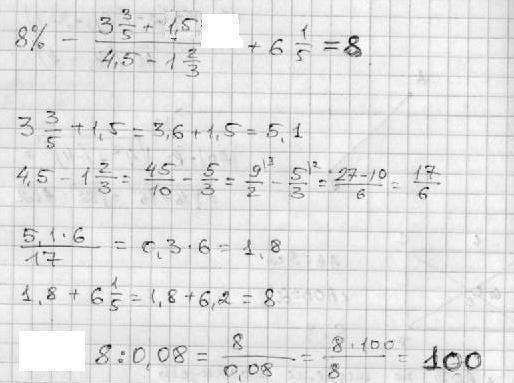 8% - (3 3/5 + 1,5)/(4,5 - 1 2/3) + 6 1/5 = 8
3 3/5 + 1,5 = 3,6 + 1,5 = 5,1
4,5 - 1 2/3 = 45/10 - 5/3 = 9/2 |3 - 5/3 |2 = 27-10/6 = 17/6
5,1·6/17 = 0,3·6 = 1,8
1,8 + 6 1/5 = 1,8 + 6,2 = 8
8 : 0,08 = 8/0,08 = 8·100/8 = 100